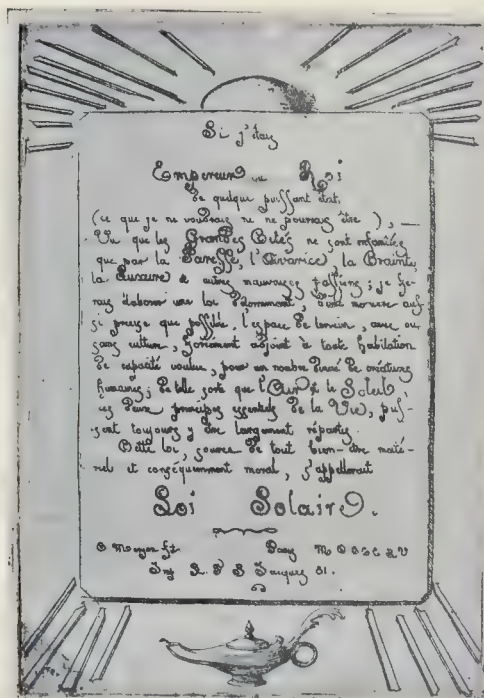 Si j'étais
Empereur ou Roi
de quelque puissant état,
(ce que je ne voudrais ne ne pourrais être), —
Vu que les Grandes Cités ne sont enfantées
que par la Paresse, l'Avarice, la Crainte,
la Luxure & autres mauvaises passions; je fe-
rais élaborer une loi déterminant, d'une manière aus-
si précise que possible, l'espace de terrain, avec ou
sans culture, forcément adjoint à toute habitation
de capacité voulue, pour un nombre donné de créatures
humaines; de telle sorte que l'Air & le Soleil
ces deux principes essentiels de la Vie, puis-
sent toujours y être largement répartis.
Cette loi, source de tout bien-être maté-
riel et conséquemment moral, s'appellerait
Loi Solaire.
C Meryon ft.
Imp Jacques 81.